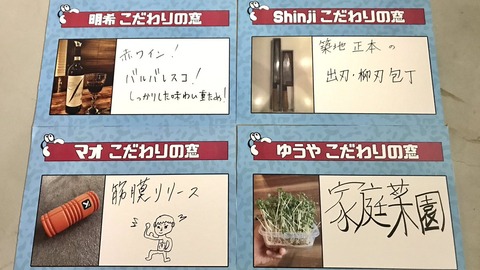 明希 こだわりの窓
赤ワイン!
バルバレスコ!
しっかりした味わい重ため!
Shinji こだわりの窓
築地 正本 の
出刃・柳刃包丁
マオ こだわりの窓
筋膜リリース
ゆうや こだわりの窓
家庭菜園